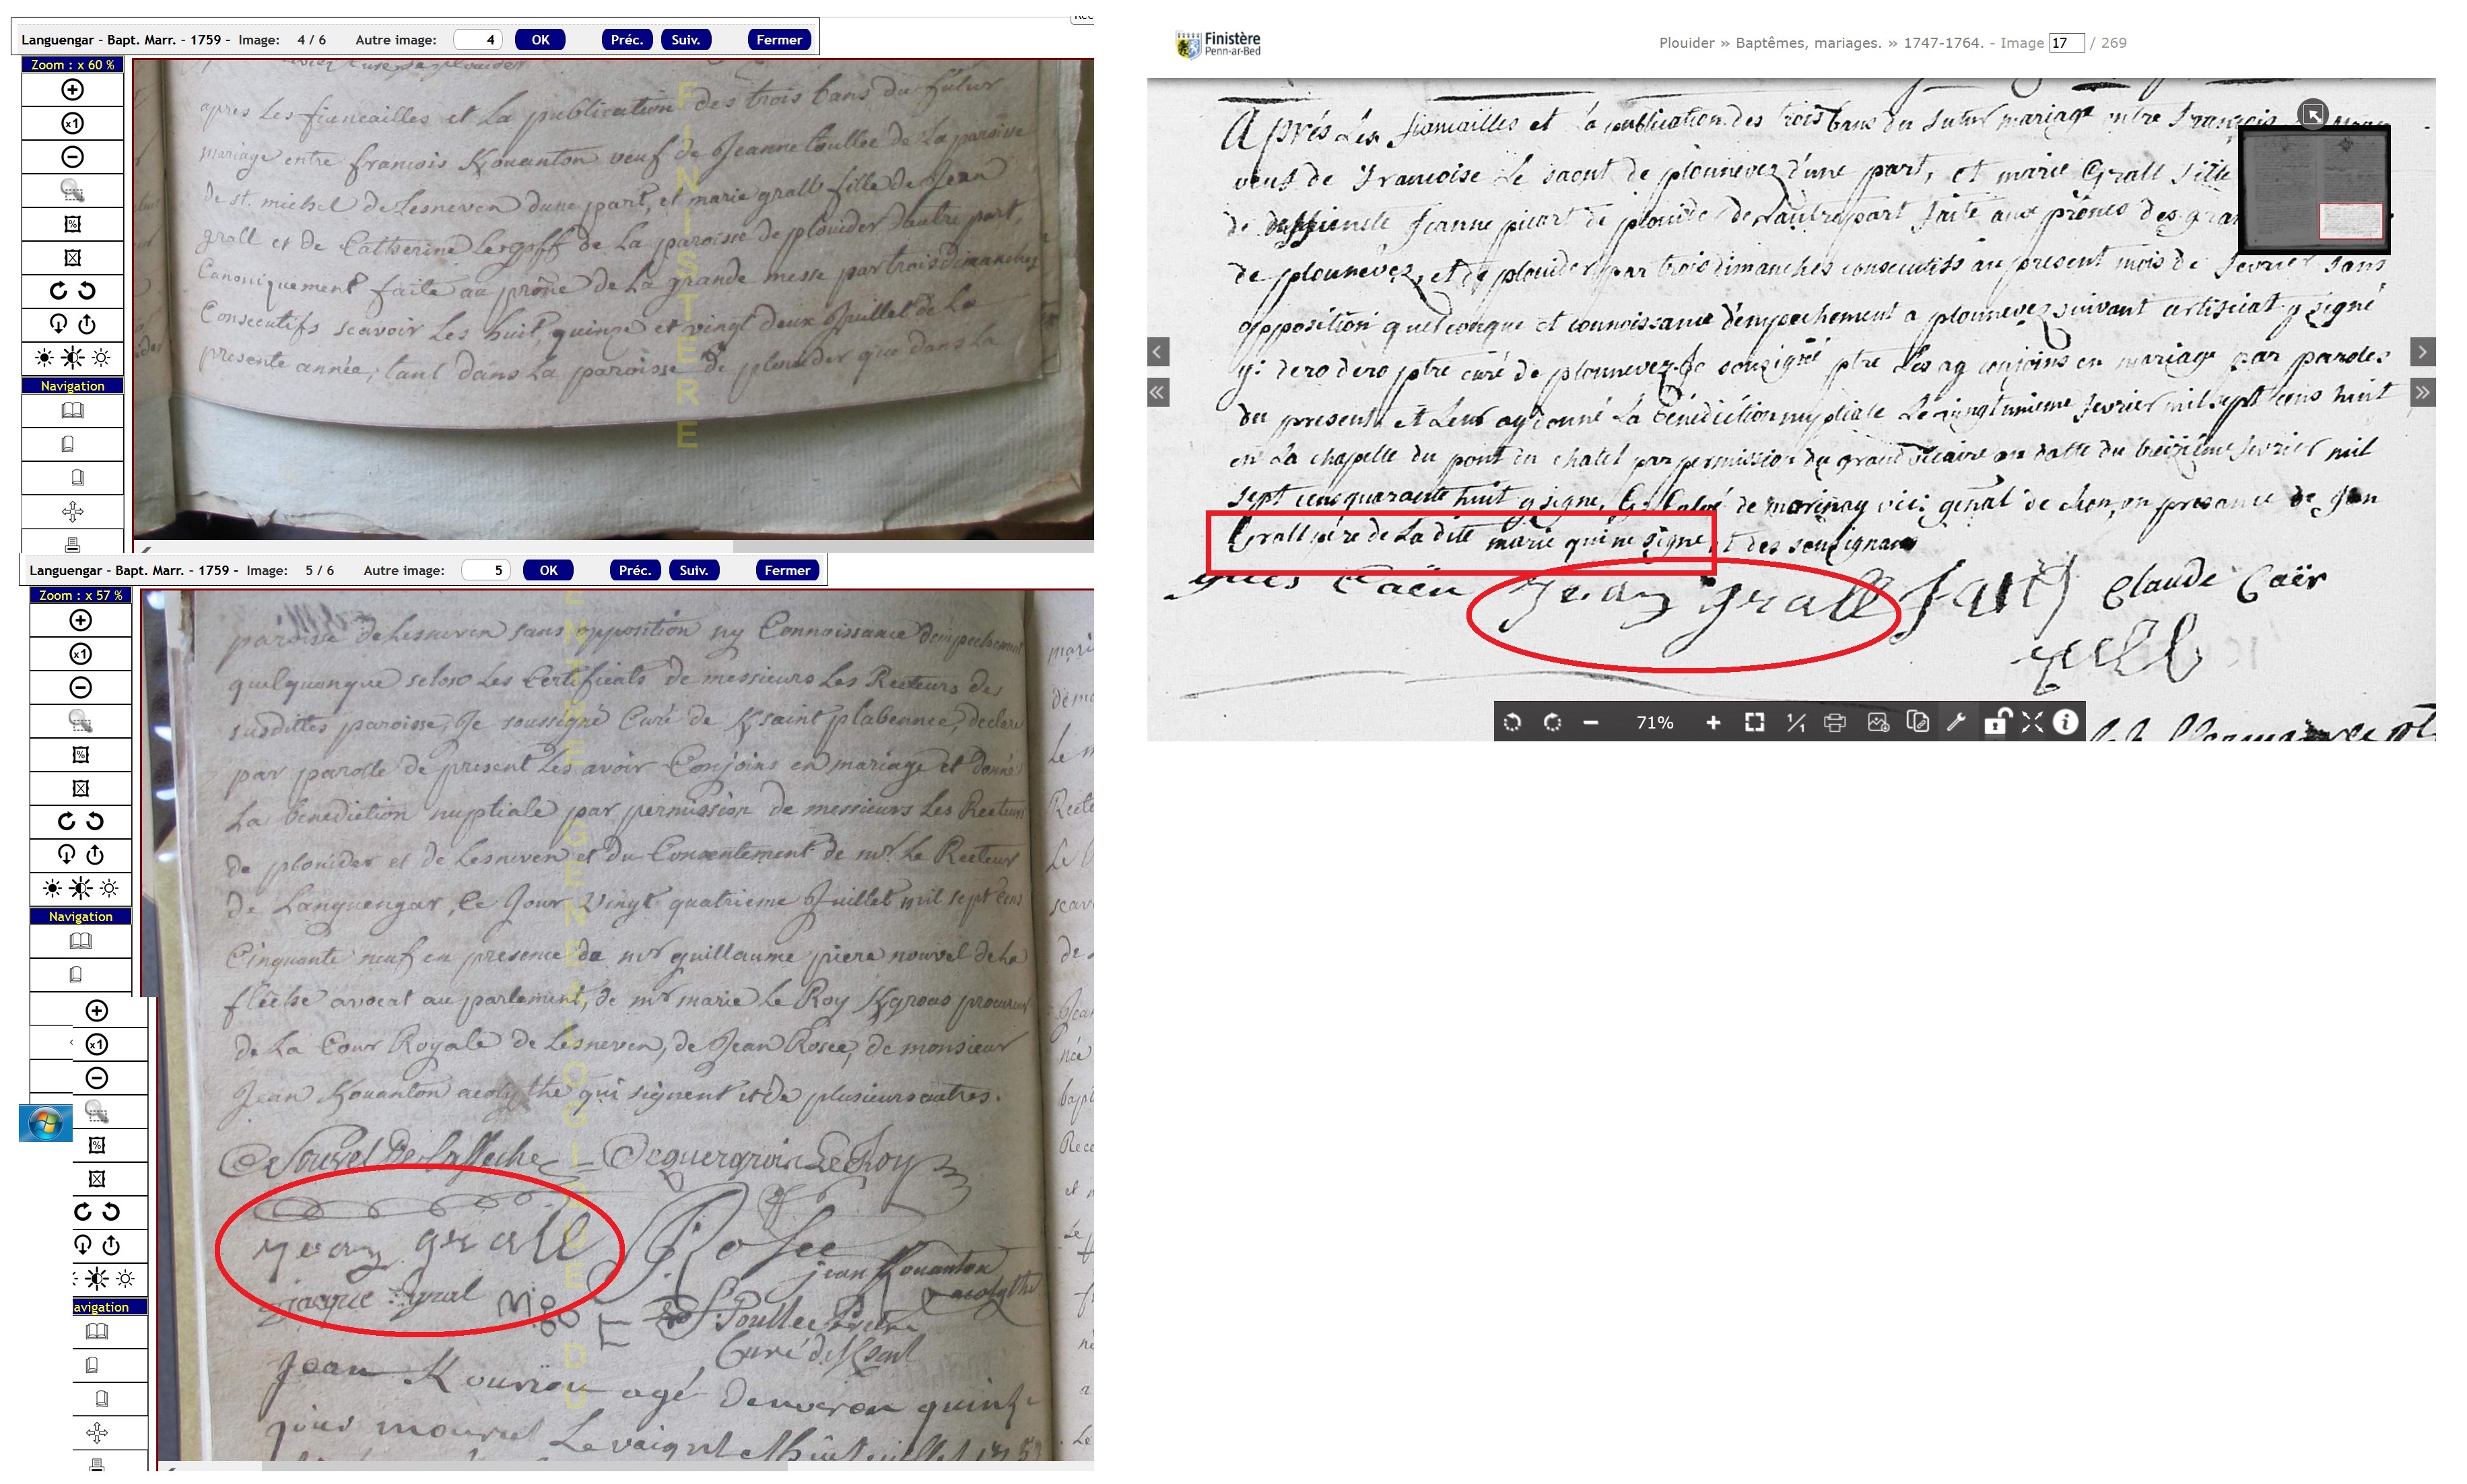 Languengar - Bapt. Marr. - 1759 - Image: 4 / 6 Autre image: 4 OK Préc. Suiv. Fermer
Zoom : x 60 %
x1
Navigation
apres Les fiencailles et La publication des trois bans du futur
mariage entre francois Kouanton veuf de Jeanne toullec de La paroisse
de st. michel de Lesneven dune part, et marie grall fille de Jean
grall et de Catherine Legoff de La paroisse de plouider dautre part,
Canoniquement faite au prône de La grande messe par trois dimanches
Consecutifs scavoir Les huit, quinze et vingt deux Juillet de La
presente année, tant dans La paroisse de plouider que dans La
FINISTERE
Languengar - Bapt. Marr. - 1759 - Image: 5 / 6 Autre image: 5 OK Préc. Suiv. Fermer
Zoom : x 57 %
x1
Navigation
paroisse de Lesneven sans opposition ny Connoissance dempechement
quelquonque selon Les Certificats de messieurs Les Recteurs des
susdittes paroisse, Je soussigné Curé de Ksaint plabennec, declare
par parolle de present Les avoir Conjoins en mariage et donné
La benediction nuptiale par permission de messieurs Les Recteurs
de plouider et de Lesneven et du Consentement de mr. Le Recteur
de Languengar, Ce Jour Vingt quatrieme Juillet mil sept Cens
Cinquante neuf en presence de mr guillaume piere nouvel de La
flêche avocat au parlement, de mr marie Le Roy Kgroas procureur
de La Cour Royale de Lesneven, de Jean Rosec, de monsieur
Jean Kouanton acolythe qui signent et de plusieurs autres.
Nouvel De lafleche Le Roy
jean grall Rosec
jean Kouanton
jacque gral acolythe
Curé de
Jean agé denveron quinze
jour mouret Le
x1
avigation
Finistère
Penn-ar-Bed
Plouider » Baptêmes, mariages. » 1747-1764. - Image 17 / 269
Aprés Les fiancailles et la publication des trois bans du futur mariage entre François
veuf de Francoise Le saout de plounevez d'une part, et marie Grall fille
de deffuncte Jeanne picart de plouider de Lautre part faite aux prônes des gran
de plounevez, et de plouider par trois dimanches consecutifs au present mois de fevrier sans
opposition quelconque et connoissance d'empechement a plounevez suivant certificat y signé
y: dero dero ptre curé de plounevez Je sousigné ptre Les ay conjoins en mariage par paroles
du present, et Leur ay donné La bénédiction nuptiale Le vingtunieme fevrier mil sept cens huit
en La chapelle du pont du chatel par permission du grand vicaire en datte du treizième fevrier mil
sept cens quarante huit y signe, de marinay vic: genal de Leon, en presance de jean
Grall père de La dite marie qui ne signe, et des sousignans
Caën jean grall Claude Caër
71%